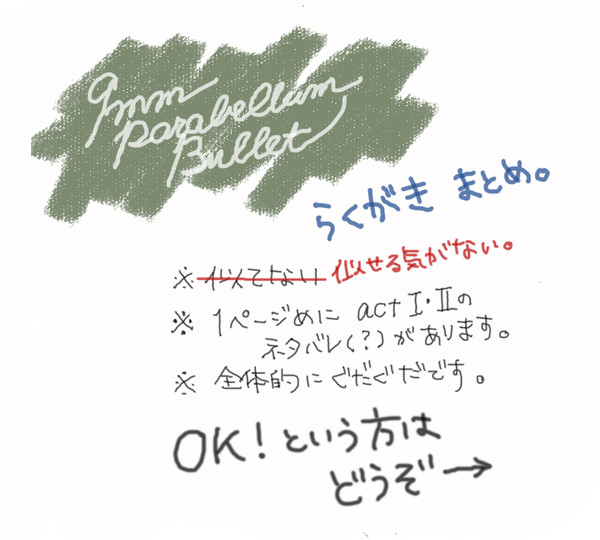 9mm
Parabellum
Bullet
らくがき まとめ。
※似てない 似せる気がない。
※ 1ページめに act I・IIの
ネタバレ(?)があります。
※ 全体的にぐだぐだです。
OK!という方は
どうぞ→